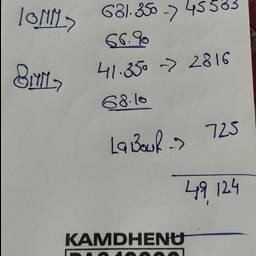 10MM → 681.350 → 45583
66.90
8MM → 41.350 → 2816
68.10
LaBouR → 725
49,124
KAMDHENU